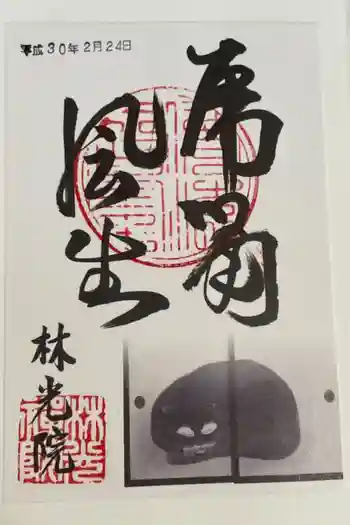 平成30年2月24日
虎嘯
風生
林光院